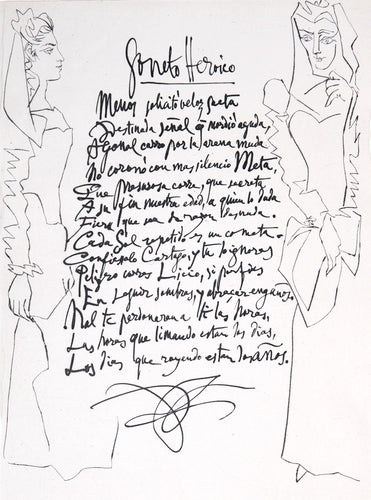 Soneto Heroico
Menos solicitó veloz saeta
Destinada señal q mordió aguda,
Agonal carro por la arena muda
No coronó con mas silencio Meta,
Que presurosa corre, que secreta
A su fin nuestra edad, a quien lo duda
Fiera que sea de razon desnuda.
Cada Sol repetido es un cometa.
Confiesalo Cartago, y tu lo ignoras
Peligro corres Licio, si porfias
En seguir sombras, y abraçar engaños.
Mal te perdonaran a ti las horas,
Las horas que limando estan los dias,
Los dias que royendo estan los años.